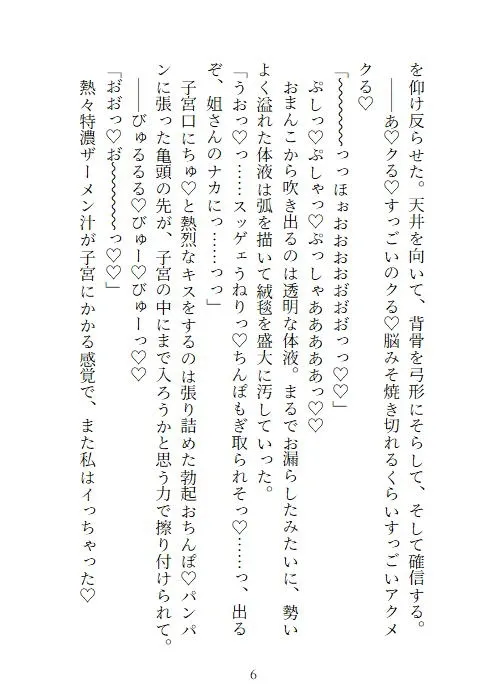 を仰け反らせた。天井を向いて、背骨を弓形にそらして、そして確信する。
――あ♡クる♡すっごいのクる♡脳みそ焼き切れるくらいすっごいアクメ
クる♡
「～～～～～っっほぉおおおおぉおぉおぉっっ♡♡」
ぷしっ♡ぷしゃっ♡ぷっしゃあああああっ♡♡
おまんこから吹き出るのは透明な体液。まるでお漏らしたみたいに、勢い
よく溢れた体液は弧を描いて絨毯を盛大に汚していった。
「うおっ♡っ……スッゲェうねりっ♡ちんぽもぎ取られそっ♡……っ、出る
ぞ、姐さんのナカにっ……っっ」
子宮口にちゅ♡と熱烈なキスをするのは張り詰めた勃起おちんぽ♡パンパ
ンに張った亀頭の先が、子宮の中にまで入ろうかと思う力で擦り付けられて。
――びゅるるる♡びゅー♡びゅーっ♡♡
「おぉっ♡お～～～～～～っ♡♡」
熱々特濃ザーメン汁が子宮にかかる感覚で、また私はイっちゃった♡
6